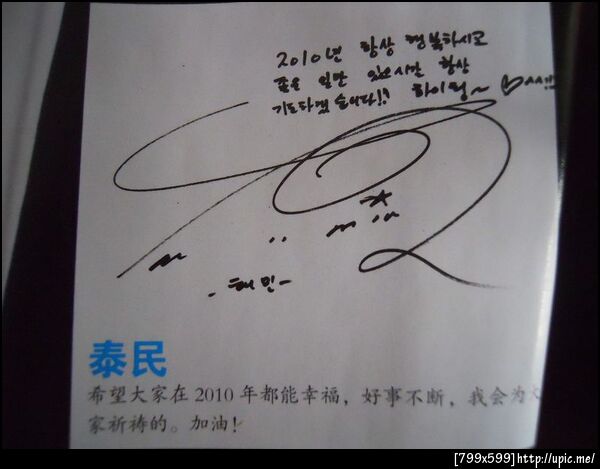 2010년 항상 행복하시고
좋은 일만 있으시길 항상
기도하겠습니다!! 화이팅~ ♡^^!!
-태민-
泰民
希望大家在2010年都能幸福，好事不断，我会为大
家祈祷的。加油！
[799x599]http://upic.me/